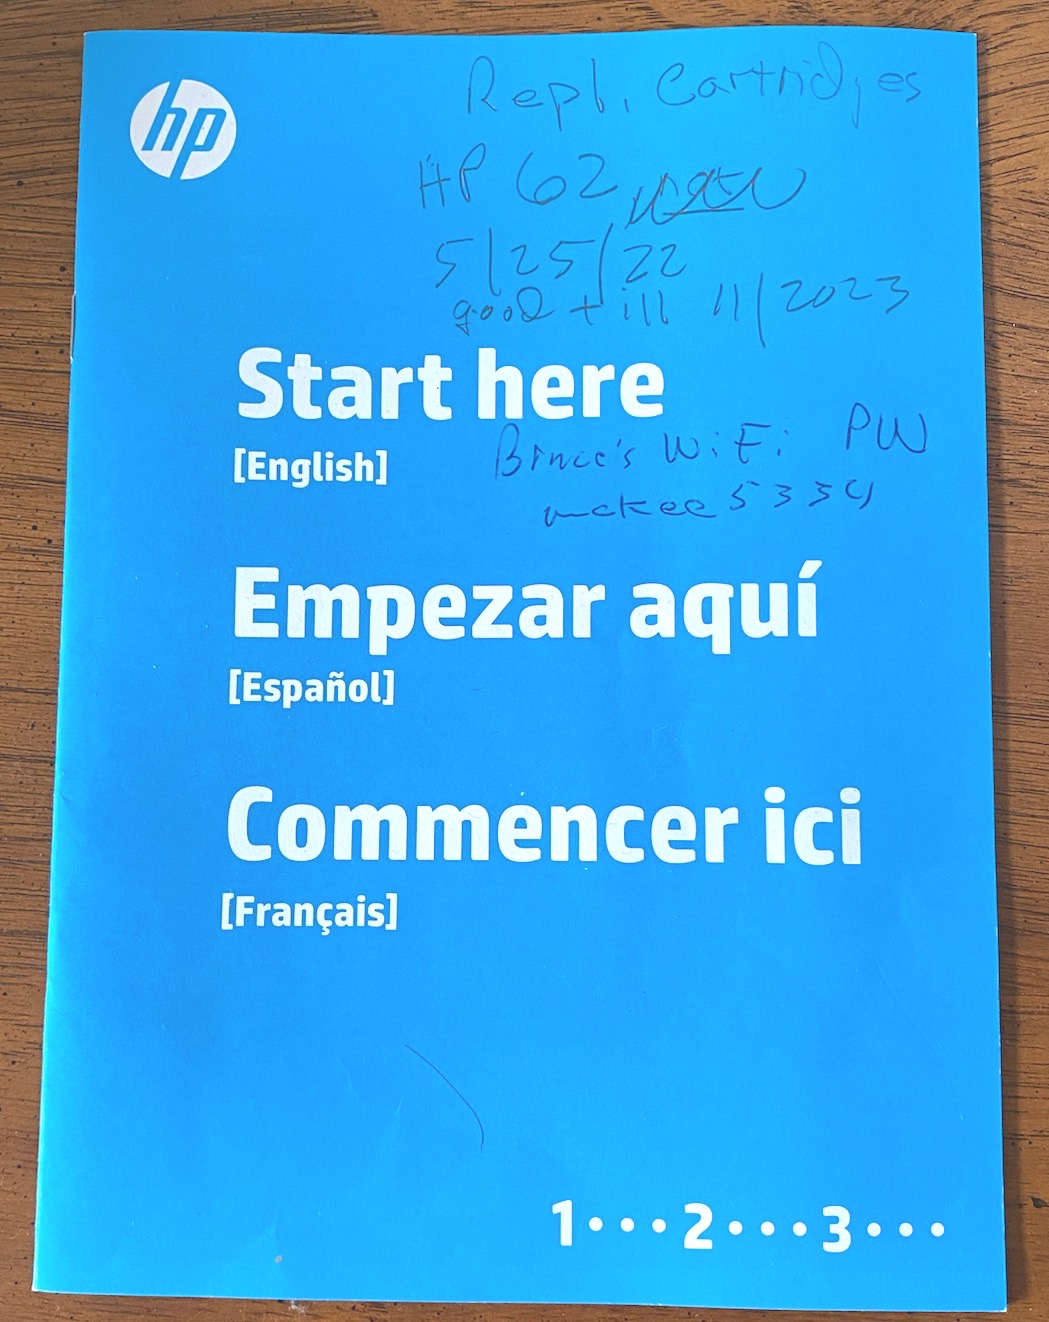 hp
Repl. Cartridges
HP 62
5/25/22
good till 11/2023
Start here
[English]
Bruce's WiFi PW
mckee5334
Empezar aquí
[Español]
Commencer ici
[Français]
1•••2•••3•••